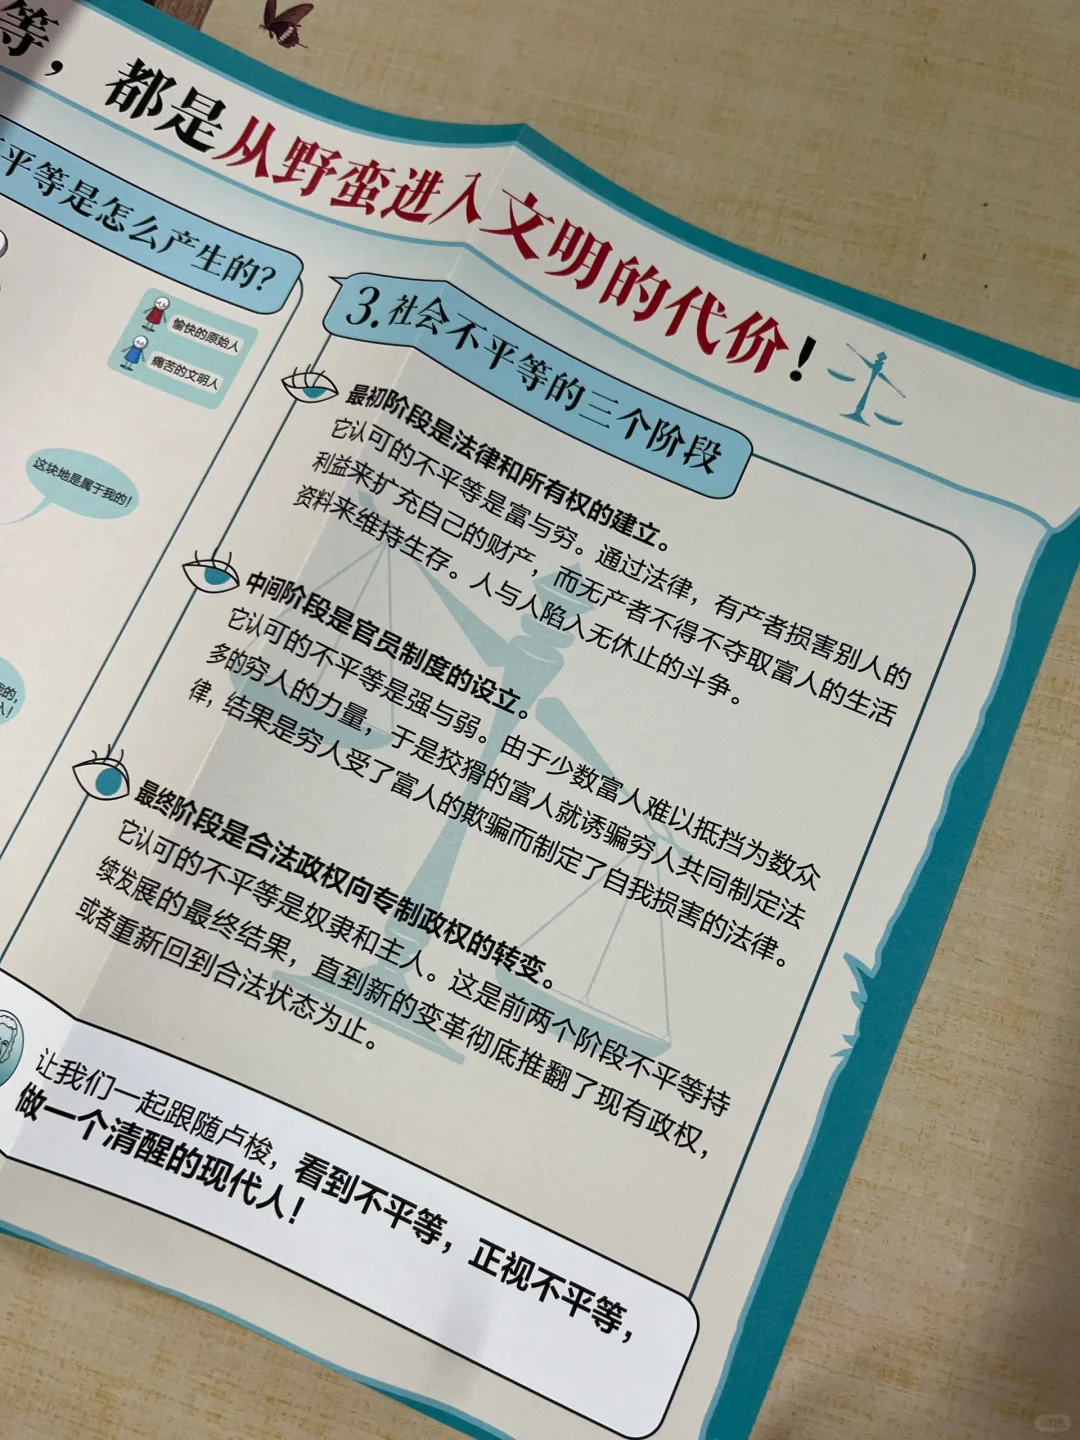 等，都是从野蛮进入文明的代价！
平等是怎么产生的？
愉快的原始人
痛苦的文明人
这块地是属于我的！
3.社会不平等的三个阶段
最初阶段是法律和所有权的建立。
它认可的不平等是富与穷。通过法律，有产者损害别人的
利益来扩充自己的财产，而无产者不得不夺取富人的生活
资料来维持生存。人与人陷入无休止的斗争。
中间阶段是官员制度的设立。
它认可的不平等是强与弱。由于少数富人难以抵挡为数众
多的穷人的力量，于是狡猾的富人就诱骗穷人共同制定法
律，结果是穷人受了富人的欺骗而制定了自我损害的法律。
最终阶段是合法政权向专制政权的转变。
它认可的不平等是奴隶和主人。这是前两个阶段不平等持
续发展的最终结果，直到新的变革彻底推翻了现有政权，
或者重新回到合法状态为止。
让我们一起跟随卢梭，看到不平等，正视不平等，
做一个清醒的现代人！
小红书